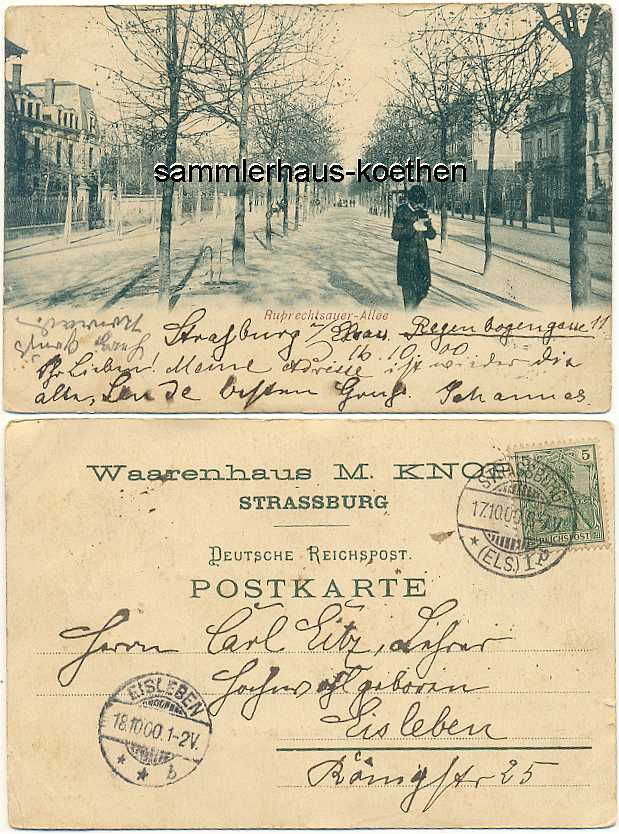 sammlerhaus-koethen
Ruprechtsauer-Allee
Straßburg i/ Elsau. Regenbogengasse 11
16. 10. 00
Ihr Lieben! Meine Adresse ist wieder die
alte, Sende besten Gruß. Johannes.
Waarenhaus M. KNOPF
STRASSBURG
DEUTSCHE REICHSPOST.
POSTKARTE
STRASSBURG
17.10.00
(ELS.) 1 P
5
REICHSPOST
Herrn Carl Eitz, Lehrer
Hochwohlgeboren
Eisleben
Königstr 25
EISLEBEN
18.10.00.1-2V.
* * b